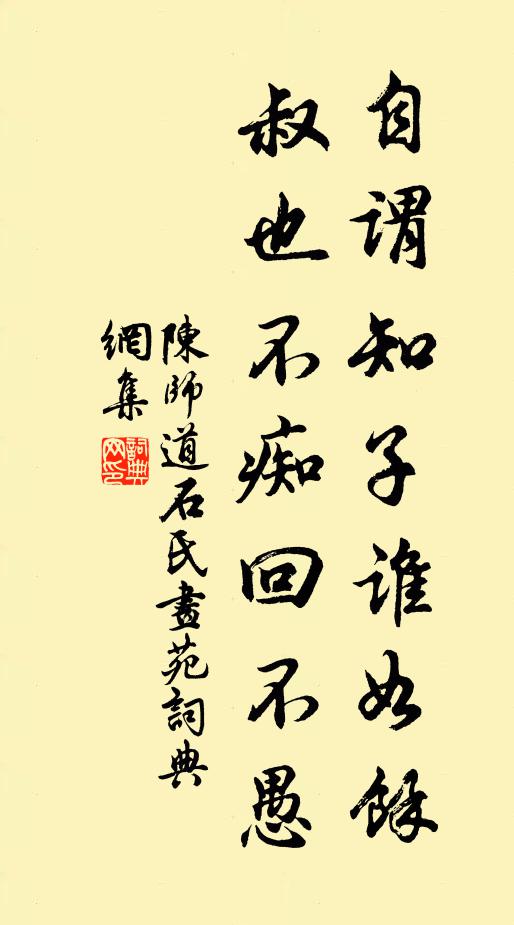 自謂知子誰如餘
叔也不痴回不愚
陳師道石氏畫苑詞典
網集
詞典網印